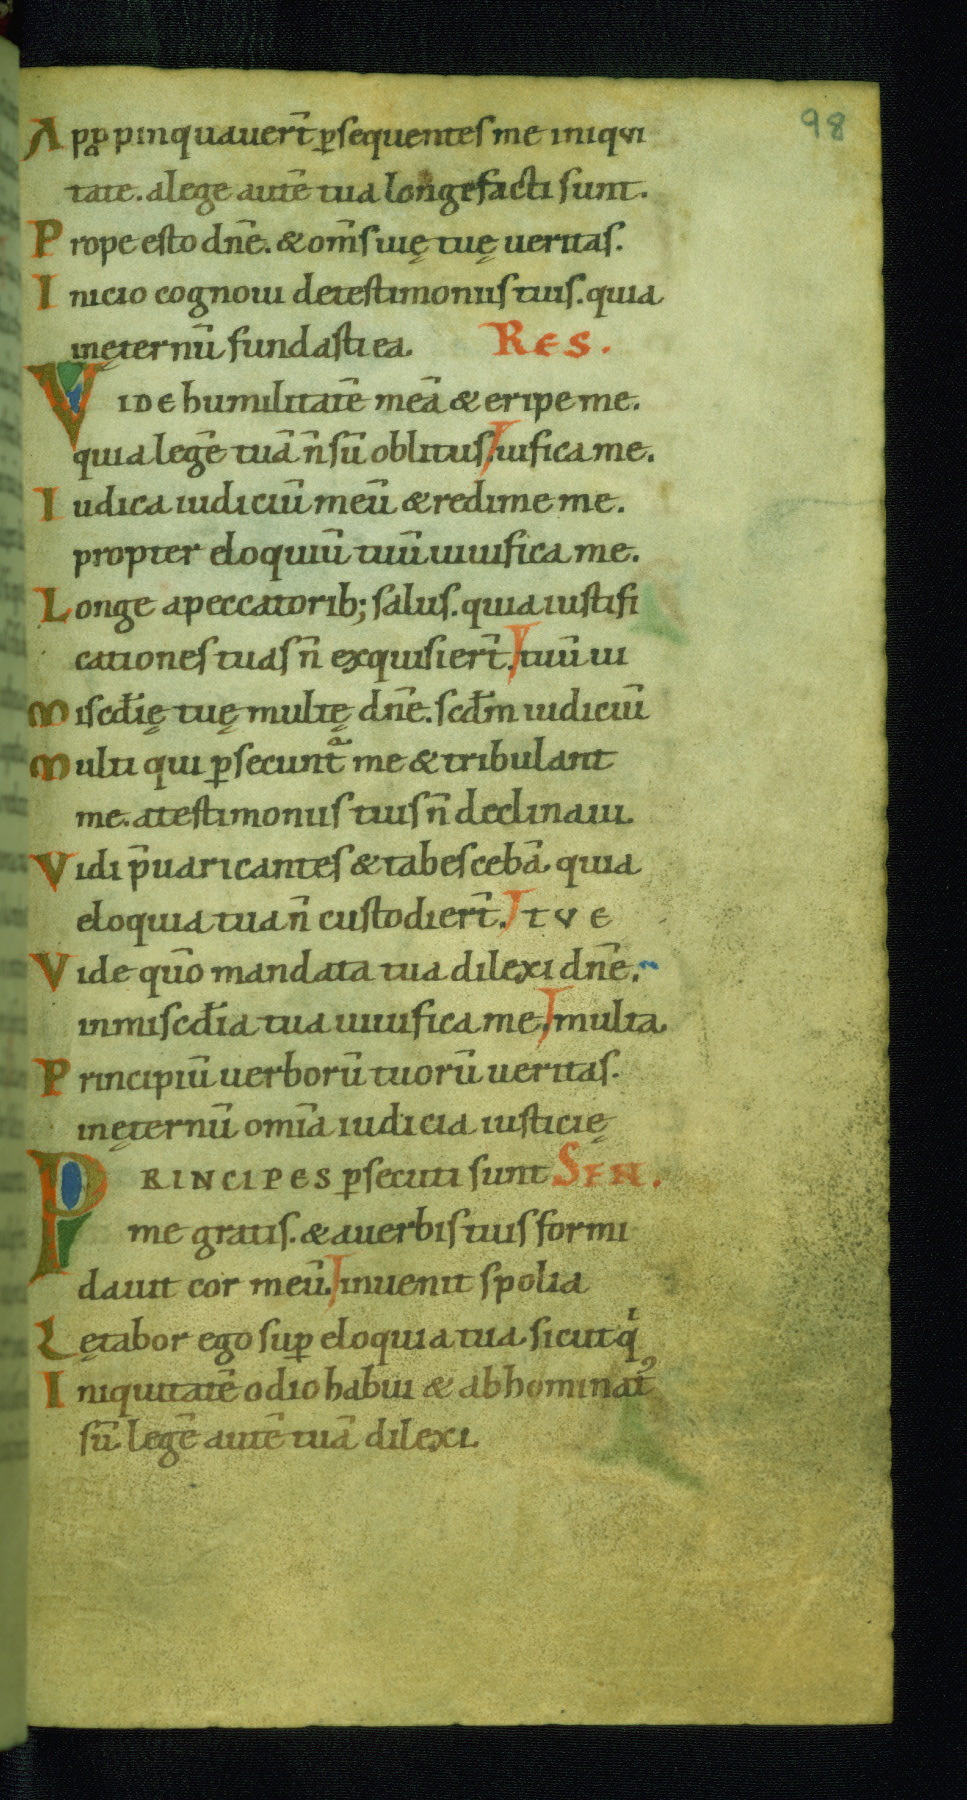 98
Appinquauer̄t ꝑsequentes me iniqui
tate. a lege autē tua longe facti sunt.
Prope esto dn̄e. & om̄s uię tuę ueritas.
Inicio cognoui de testimoniis tuis. quia
in ęternū fundasti ea. RES.
VIDE humilitatē meā & eripe me.
quia legē tuā n̄ sū oblitus. uifica me.
Iudica iudiciū meū & redime me.
propter eloquiū tuū uiuifica me.
Longe a peccatorib; salus. quia iustifi
cationes tuas n̄ exquisier̄t. tuū ui
Misc̄dię tuę multę dn̄e. scd̄m iudiciū
Multi qui ꝑsecunt̄ me & tribulant
me. a testimoniis tuis n̄ declinaui.
Vidi p̄uaricantes & tabescebā. quia
eloquia tua n̄ custodier̄t. TVE
Vide qūo mandata tua dilexi dn̄e.
in misc̄dia tua uiuifica me. multa
Principiū uerborū tuorū ueritas.
in ęternū om̄ia iudicia iusticię
PRINCIPES ꝑsecuti sunt SEN.
me gratis. & a uerbis tuis formi
dauit cor meū. inuenit spolia
Lętabor ego suꝑ eloquia tua. sicut qⁱ
Iniquitatē odio habui & abhominat᷒
sū. legē autē tuā dilexi.